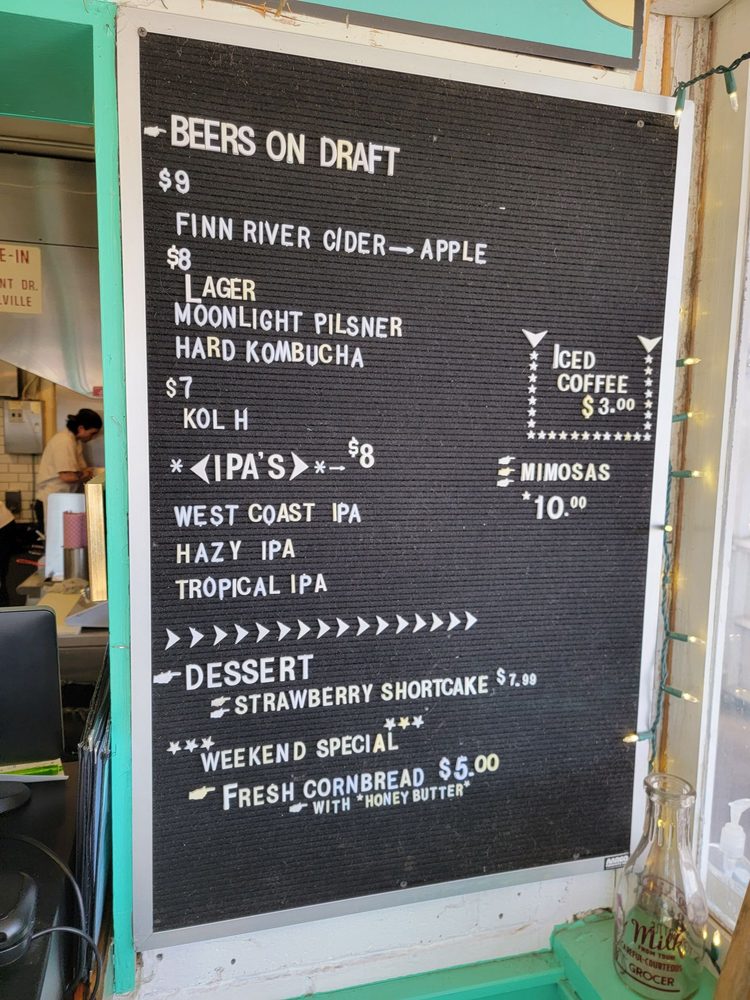 BEERS ON DRAFT
$9
FINN RIVER CIDER → APPLE
$8
LAGER
MOONLIGHT PILSNER
HARD KOMBUCHA
$7
KOL H
* <IPA'S> * - $8
WEST COAST IPA
HAZY IPA
TROPICAL IPA
> > > > > > > > > > > > >
DESSERT
STRAWBERRY SHORTCAKE $7.99
*** WEEKEND SPECIAL ***
FRESH CORNBREAD $5.00
WITH *HONEY BUTTER*
ICED
COFFEE
$3.00
MIMOSAS
*10.00
E-IN
NT DR.
VILLE
Milk
FROM YOUR
GROCER